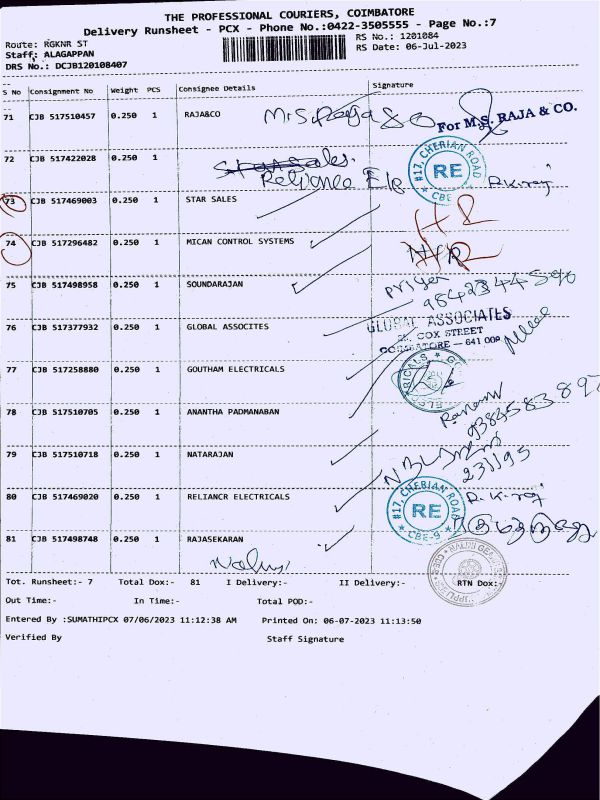 THE PROFESSIONAL COURIERS, COIMBATORE
Delivery Runsheet - PCX - Phone No.:0422-3505555 - Page No.:7
Route: RGKNR ST
RS No.: 1201084
Staff: ALAGAPPAN
RS Date: 06-Jul-2023
DRS No.: DCJB120108407
S No Consignment No Weight PCS Consignee Details Signature
71 CJB 517510457 0.250 1 RAJA&CO
For M.S. RAJA & CO.
72 CJB 517422028 0.250 1
Reliance
#17, CHERIAN ROAD
RE
CBE
73 CJB 517469003 0.250 1 STAR SALES
74 CJB 517296482 0.250 1 MICAN CONTROL SYSTEMS
75 CJB 517498958 0.250 1 SOUNDARAJAN
76 CJB 517377932 0.250 1 GLOBAL ASSOCITES
GLOBAL ASSOCIATES
COX STREET
COIMBATORE — 641 009
77 CJB 517258880 0.250 1 GOUTHAM ELECTRICALS
78 CJB 517510705 0.250 1 ANANTHA PADMANABAN
79 CJB 517510718 0.250 1 NATARAJAN
80 CJB 517469020 0.250 1 RELIANCR ELECTRICALS
#17, CHERIAN ROAD
RE
CBE-9
81 CJB 517498748 0.250 1 RAJASEKARAN
Tot. Runsheet:- 7 Total Dox:- 81 I Delivery:- II Delivery:- RTN Dox:-
Out Time:- In Time:- Total POD:-
Entered By :SUMATHIPCX 07/06/2023 11:12:38 AM Printed On: 06-07-2023 11:13:50
Verified By Staff Signature